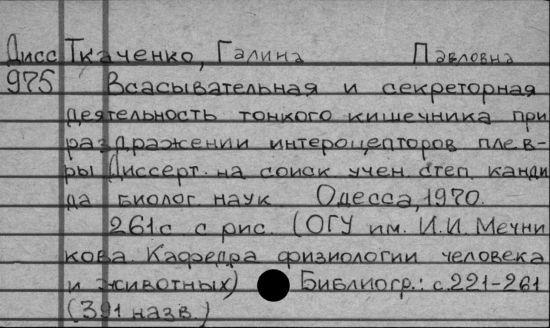 Дисс Ткаченко, Галина Павловна
975 Всасывательная и секреторная
деятельность тонкого кишечника при
раздражении интероцепторов плев-
ры Диссерт. на соиск учен. степ. канди
да биолог. наук Одесса, 1970.
261с с рис. (ОГУ им. И.И. Мечни
кова. Кафедра физиологии человека
и животных) Библиогр.: с.221-261
(391 назв.)